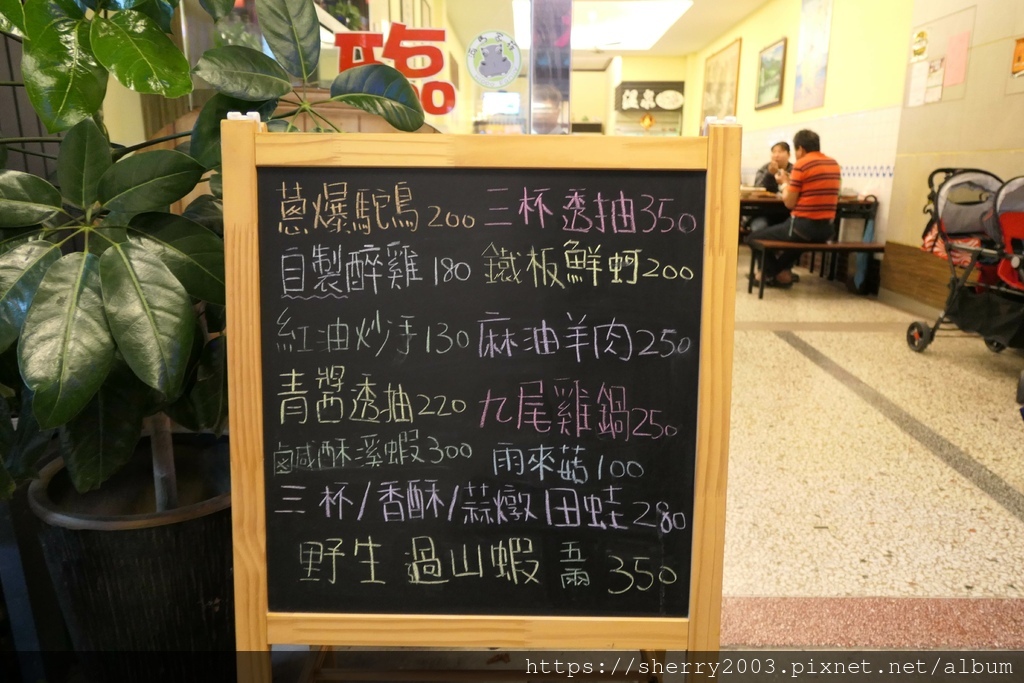 臨
溫泉
蔥爆鴕鳥200 三杯透抽350
自製醉雞180 鐵板鮮蚵200
紅油炒手130 麻油羊肉250
青醬透抽220 九尾雞鍋250
鹹酥溪蝦300 雨來菇100
三杯/香酥/蒜燉田蛙280
野生過山蝦 五兩 350
https://sherry2003.pixnet.net/album